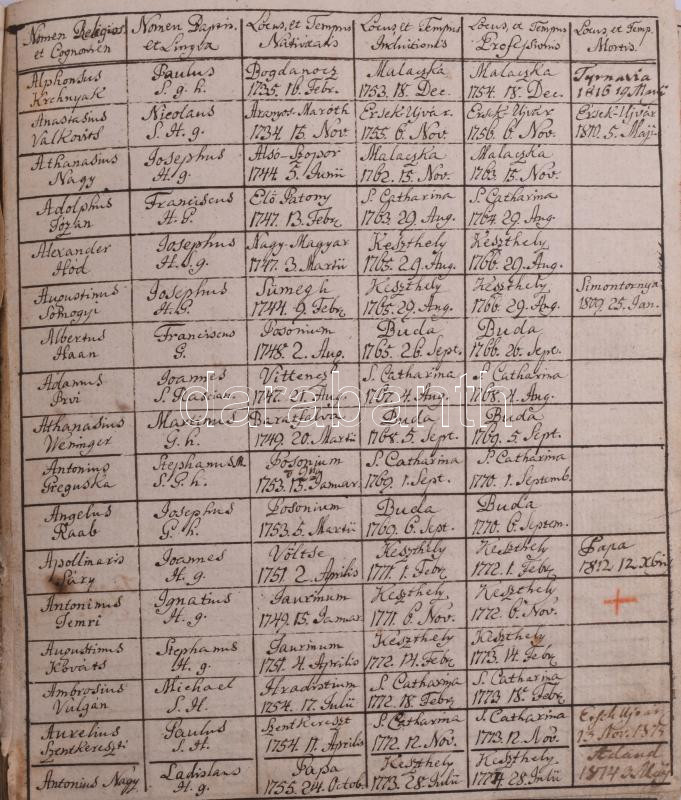 Nomen Religios. Nomen Baptis. Locus, et Tempus Locus, et Tempus Locus, et Tempus Locus et Temp.
et Cognomen et Lingva Nativitatis Induitionis Professionis Mortis.
Alphonsus Paulus Bogdanocz Malaczka Malaczka Tyrnavia
Krchnyak S. g. h. 1735. 16. Febr. 1753. 18. Dec. 1754. 18. Dec. 1816 19 Martii
Anastasius Nicolaus Aranyos-Maróth Ersek-Ujvár Ersek-Ujvár Ersek-Ujvár
Valkovits S. H. g. 1734. 15. Nov. 1755. 6. Nov. 1756. 6. Nov. 1810. 5. Maji
Athanasius Josephus Alsó-Szopor Malaczka Malaczka
Nagy H. g. 1744. 5. Junii 1762. 15. Nov. 1763. 15. Nov.
Adolphus Franciscus Elö Patony S. Catharina S. Catharina
Józan H. G. 1747. 13. Febr. 1763. 29. Aug. 1764. 29. Aug.
Alexander Josephus Nagy-Magyar Keszthely Keszthely
Hód H. S. g. 1747. 3. Martii 1765. 29. Aug. 1766. 29. Aug.
Augustinus Josephus Sümegh Keszthely Keszthely Simontornya
Somogyi H. G. 1744. 9. Febr. 1765. 29. Aug. 1766. 29. Aug. 1809. 25. Jan.
Albertus Franciscus Posonium Buda Buda
Haan G. 1748. 2. Aug. 1765. 26. Sept. 1766. 26. Sept.
Adamus Joannes Vittenez S. Catharina S. Catharina
Prvi S. Rascian. 1747. 21. Aug. 1767. 4. Aug. 1768. 4. Aug.
Athanasius Martinus Buda Buda
Weninger G. h. 1749. 20. Martii 1768. 5. Sept. 1769. 5. Sept.
Antonius Stephanus M. Posonium S. Catharina S. Catharina
Greguska S. G. h. 1753. 13. Januar. 1769. 1. Sept. 1770. 1. Septemb.
Angelus Josephus Posonium Buda Buda
Raab G. h. 1753. 5. Martii 1769. 6. Sept. 1770. 6. Septem.
Apollinaris Joannes Völtse Keszthely Keszthely Papa
Sáry H. g. 1751. 2. Aprilis 1771. 1. Febr. 1772. 1. Febr. 1812. 12. Xbris
Antoninus Ignatius Jaurinum Keszthely Keszthely
Temri H. g. 1749. 15. Januar. 1771. 6. Nov. 1772. 6. Nov.
Augustinus Stephanus Jaurinum Keszthely Keszthely
Kováts H. g. 1751. 4. Aprilis 1772. 14. Febr. 1773. 14. Febr.
Ambrosius Michael Hradistium S. Catharina S. Catharina
Vulgan S. H. 1754. 17. Julii 1772. 18. Febr. 1773. 18. Febr.
Aurelius Paulus Szentkereszt S. Catharina S. Catharina Ersek Ujvar
Szentkereszti S. H. 1754. 17. Aprilis 1772. 12. Nov. 1773. 12. Nov. 13. Nov. 1815
Ladislaus Papa Keszthely Keszthely
Antonius Nagy H. g. 1755. 24. Octob. 1773. 28. Julii 1774. 28 Julii
darabanth